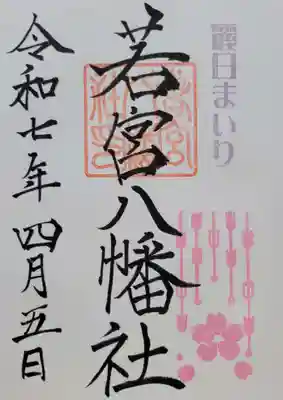 日まいり
若宮八幡社
令和七年 四月五日